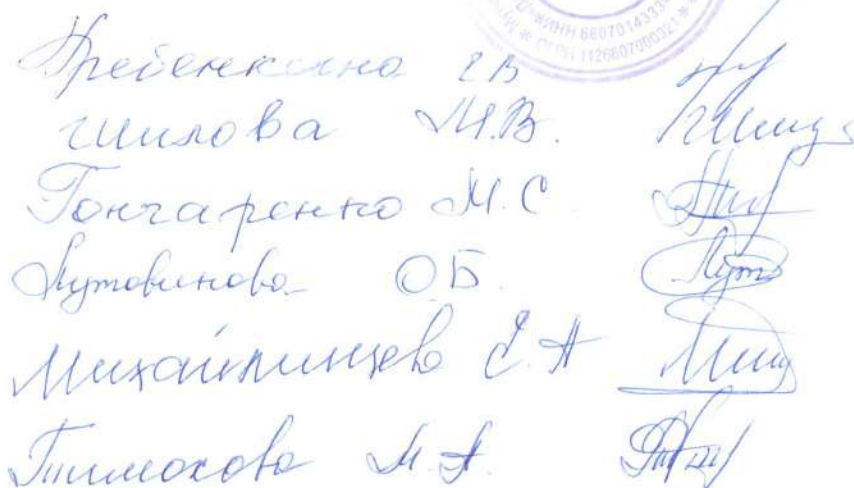 ИНН 6607014333
* ОГРН 1126607000321 *
Гребенкина Е В
Шилова М.В.
Гончаренко М.С
Лутовинова О.Б.
Михайлинцева Е.А
Тимохова М.А.